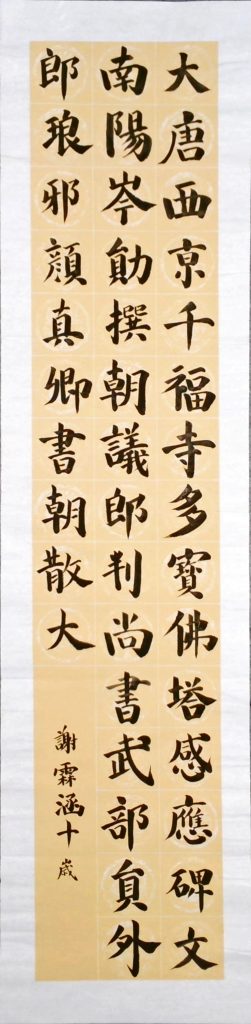 大唐西京千福寺多寶佛塔感應碑文
南陽岑勛撰朝議郎判尚書武部員外
郎琅邪顏真卿書朝散大
謝霖涵十歲